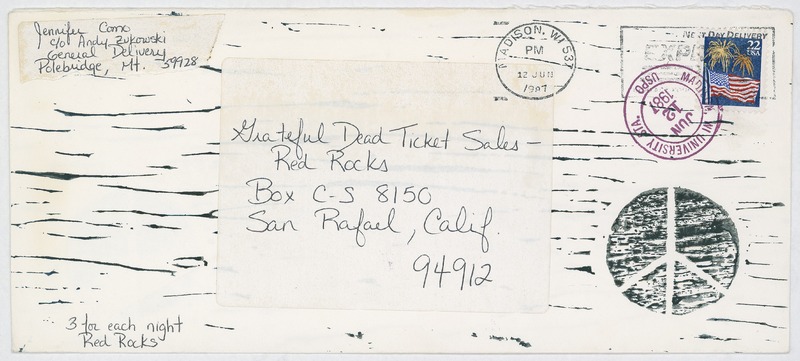 Jennifer Como
c/o Andy Zukowski
General Delivery
Polebridge, Mt. 59928
MADISON, WI 537
PM
12 JUN
1987
NEXT DAY DELIVERY
22
USA
UNIVERSITY STA.
JUN
12
1987
USPO
Grateful Dead Ticket Sales –
Red Rocks
Box C-S 8150
San Rafael, Calif.
94912
3 for each night
Red Rocks